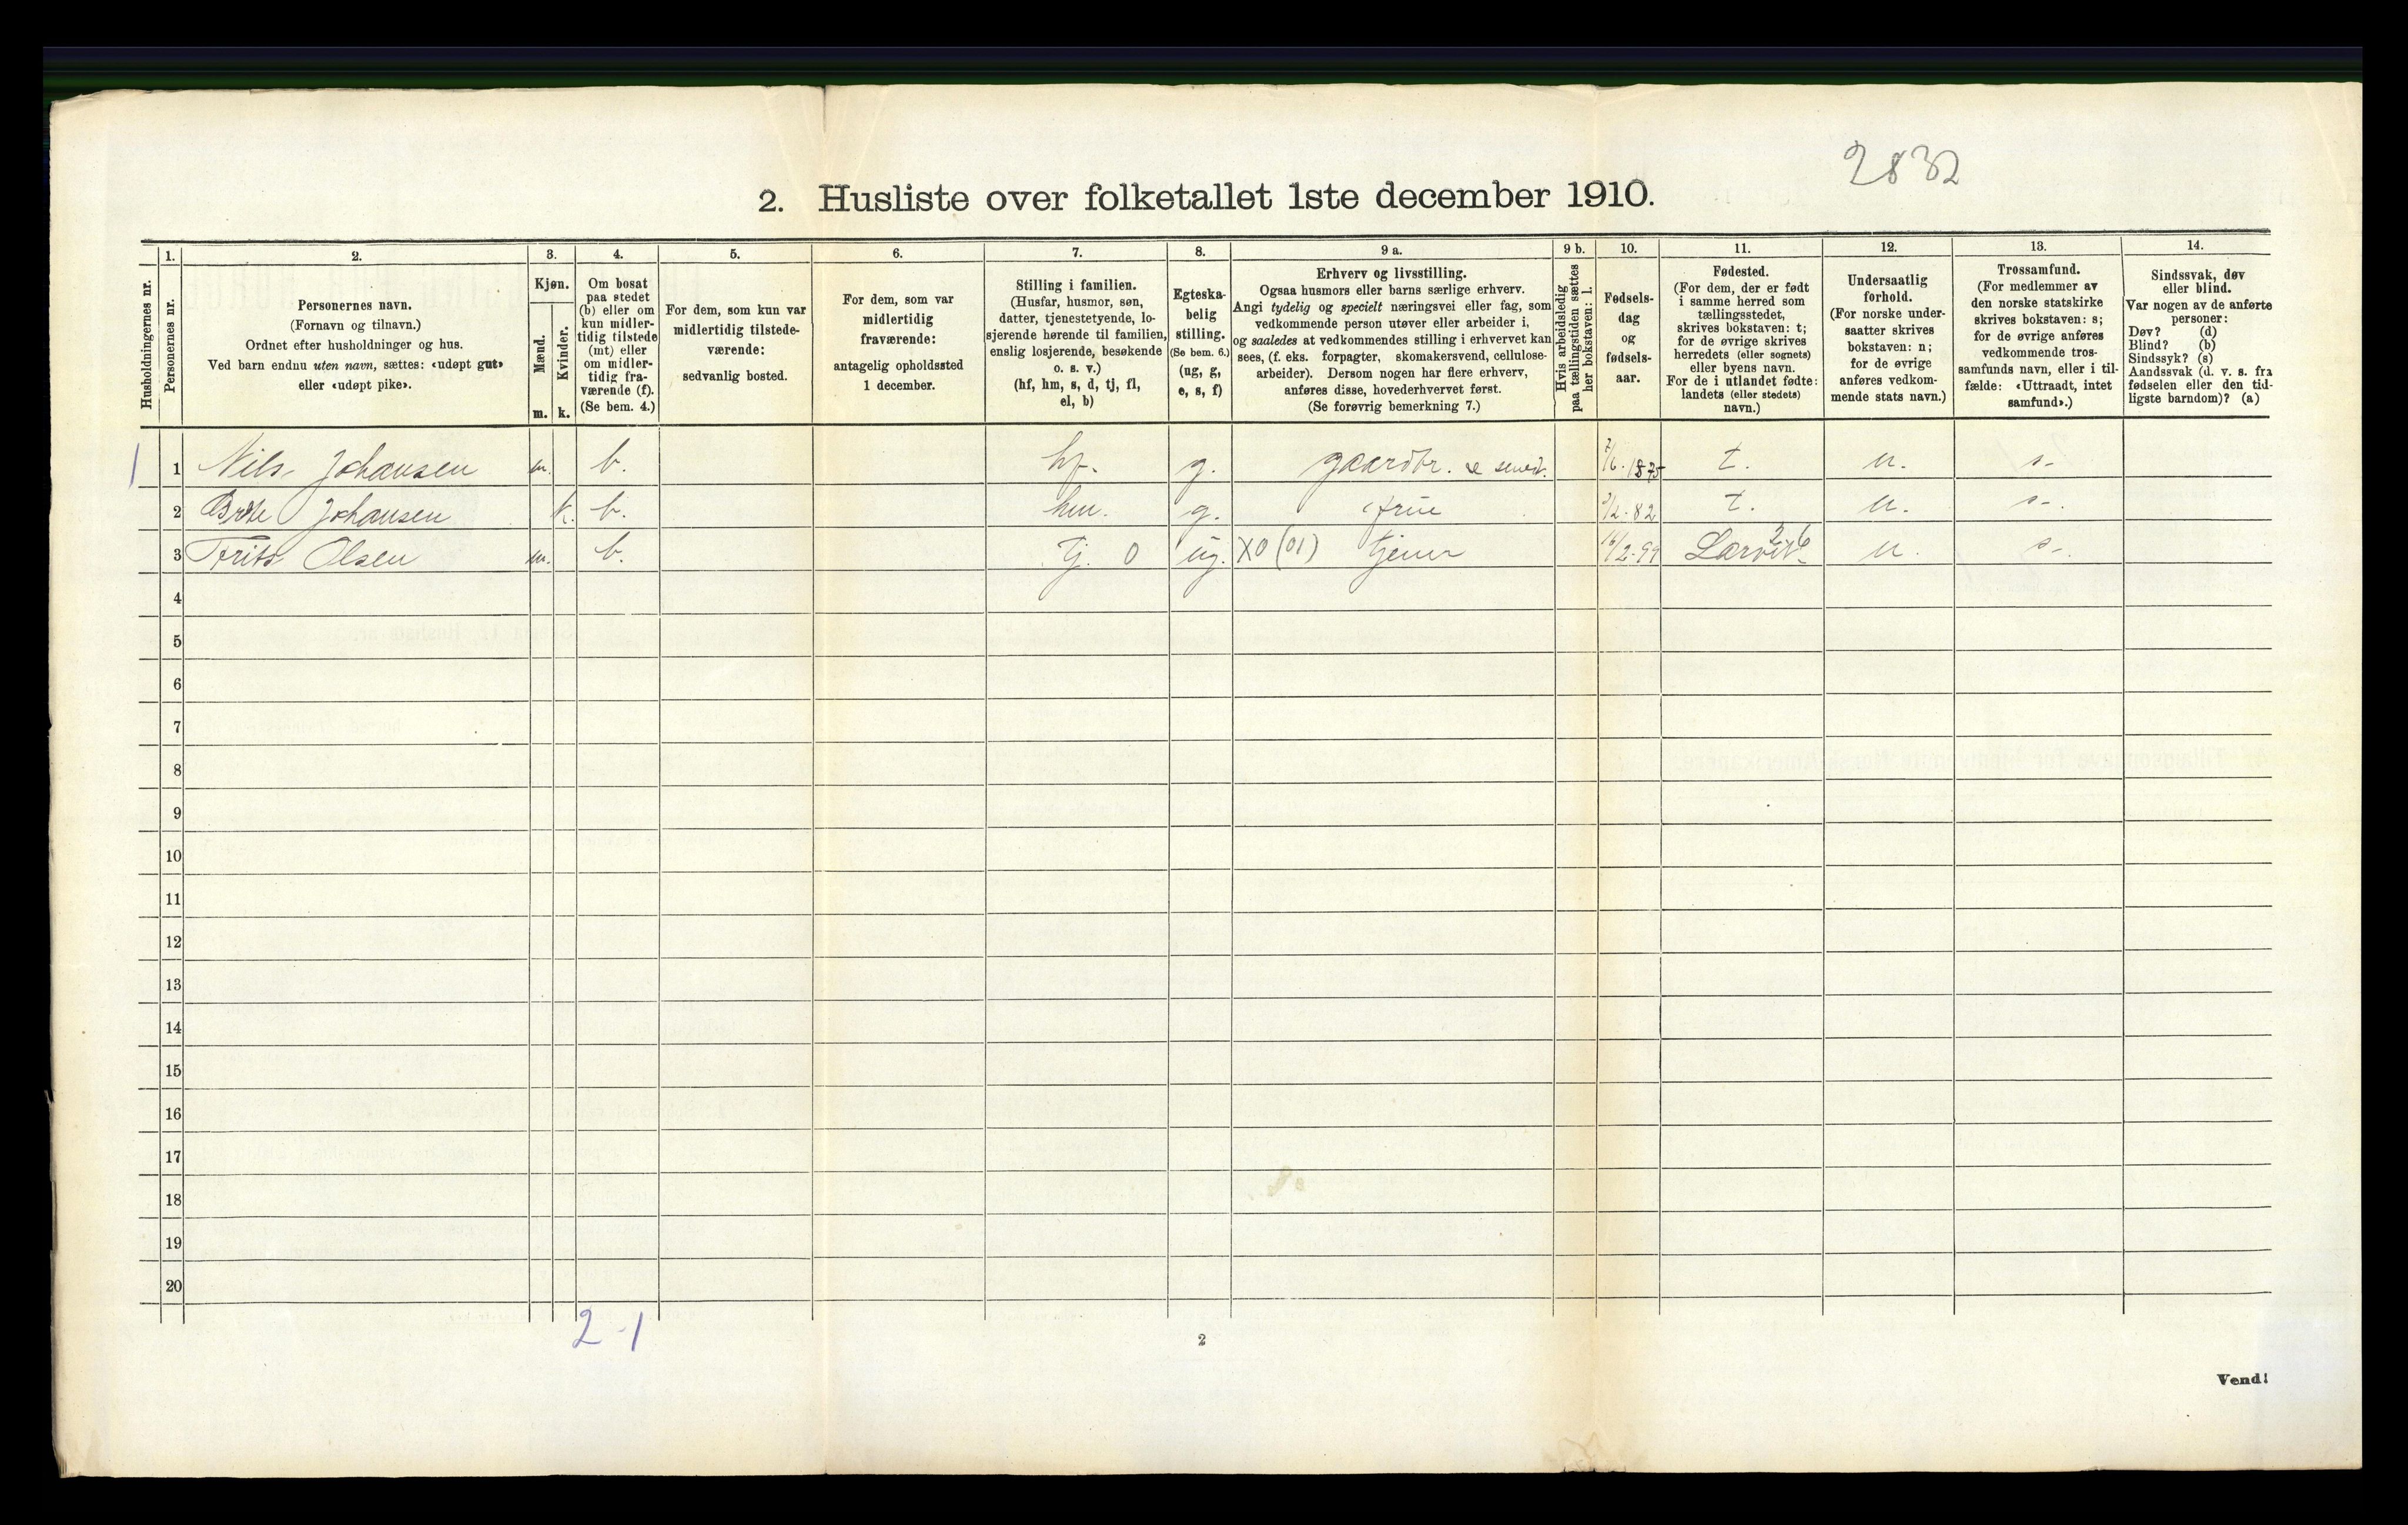 2832
2. Husliste over folketallet 1ste december 1910.
Husholdningernes nr.
1.
Personernes nr.
2.
Personernes navn.
(Fornavn og tilnavn.)
Ordnet efter husholdninger og hus.
Ved barn endnu uten navn, sættes: «udøpt gut»
eller «udøpt pike».
3.
Kjøn.
Mænd.
Kvinder.
m. k.
4.
Om bosat
paa stedet
(b) eller om
kun midler-
tidig tilstede
(mt) eller
om midler-
tidig fra-
værende (f).
(Se bem. 4.)
5.
For dem, som kun var
midlertidig tilstede-
værende:
sedvanlig bosted.
6.
For dem, som var
midlertidig
fraværende:
antagelig opholdssted
1 december.
7.
Stilling i familien.
(Husfar, husmor, søn,
datter, tjenestetyende, lo-
sjerende hørende til familien,
enslig losjerende, besøkende
o. s. v.)
(hf, hm, s, d, tj, fl,
el, b)
8.
Egteska-
belig
stilling.
(Se bem. 6.)
(ug, g,
e, s, f)
9 a.
Erhverv og livsstilling.
Ogsaa husmors eller barns særlige erhverv.
Angi tydelig og specielt næringsvei eller fag, som
vedkommende person utøver eller arbeider i,
og saaledes at vedkommendes stilling i erhvervet kan
sees, (f. eks. forpagter, skomakersvend, cellulose-
arbeider). Dersom nogen har flere erhverv,
anføres disse, hovederhvervet først.
(Se forøvrig bemerkning 7.)
9 b.
Hvis arbeidsledig
paa tællingstiden sættes
her bokstaven: l.
10.
Fødsels-
dag
og
fødsels-
aar.
11.
Fødested.
(For dem, der er født
i samme herred som
tællingsstedet,
skrives bokstaven: t;
for de øvrige skrives
herredets (eller sognets)
eller byens navn.
For de i utlandet fødte:
landets (eller stedets)
navn.)
12.
Undersaatlig
forhold.
(For norske under-
saatter skrives
bokstaven: n;
for de øvrige
anføres vedkom-
mende stats navn.)
13.
Trossamfund.
(For medlemmer av
den norske statskirke
skrives bokstaven: s;
for de øvrige anføres
vedkommende tros-
samfunds navn, eller i til-
fælde: «Uttraadt, intet
samfund».)
14.
Sindssvak, døv
eller blind.
Var nogen av de anførte
personer:
Døv? (d)
Blind? (b)
Sindssyk? (s)
Aandssvak (d. v. s. fra
fødselen eller den tid-
ligste barndom)? (a)
1 1 Nils Johansen m. b. hf. g. gaardbr. 1875 t. n. s.
2 Johansen k. b. hm. g. frue 82 t. n. s.
3 Frits Olsen m. b. tj. 0 ug. X0 (01) tjener 16/2-99 Larvik n. s.
4
5
6
7
8
9
10
11
12
13
14
15
16
17
18
19
20
2-1
2
Vend!